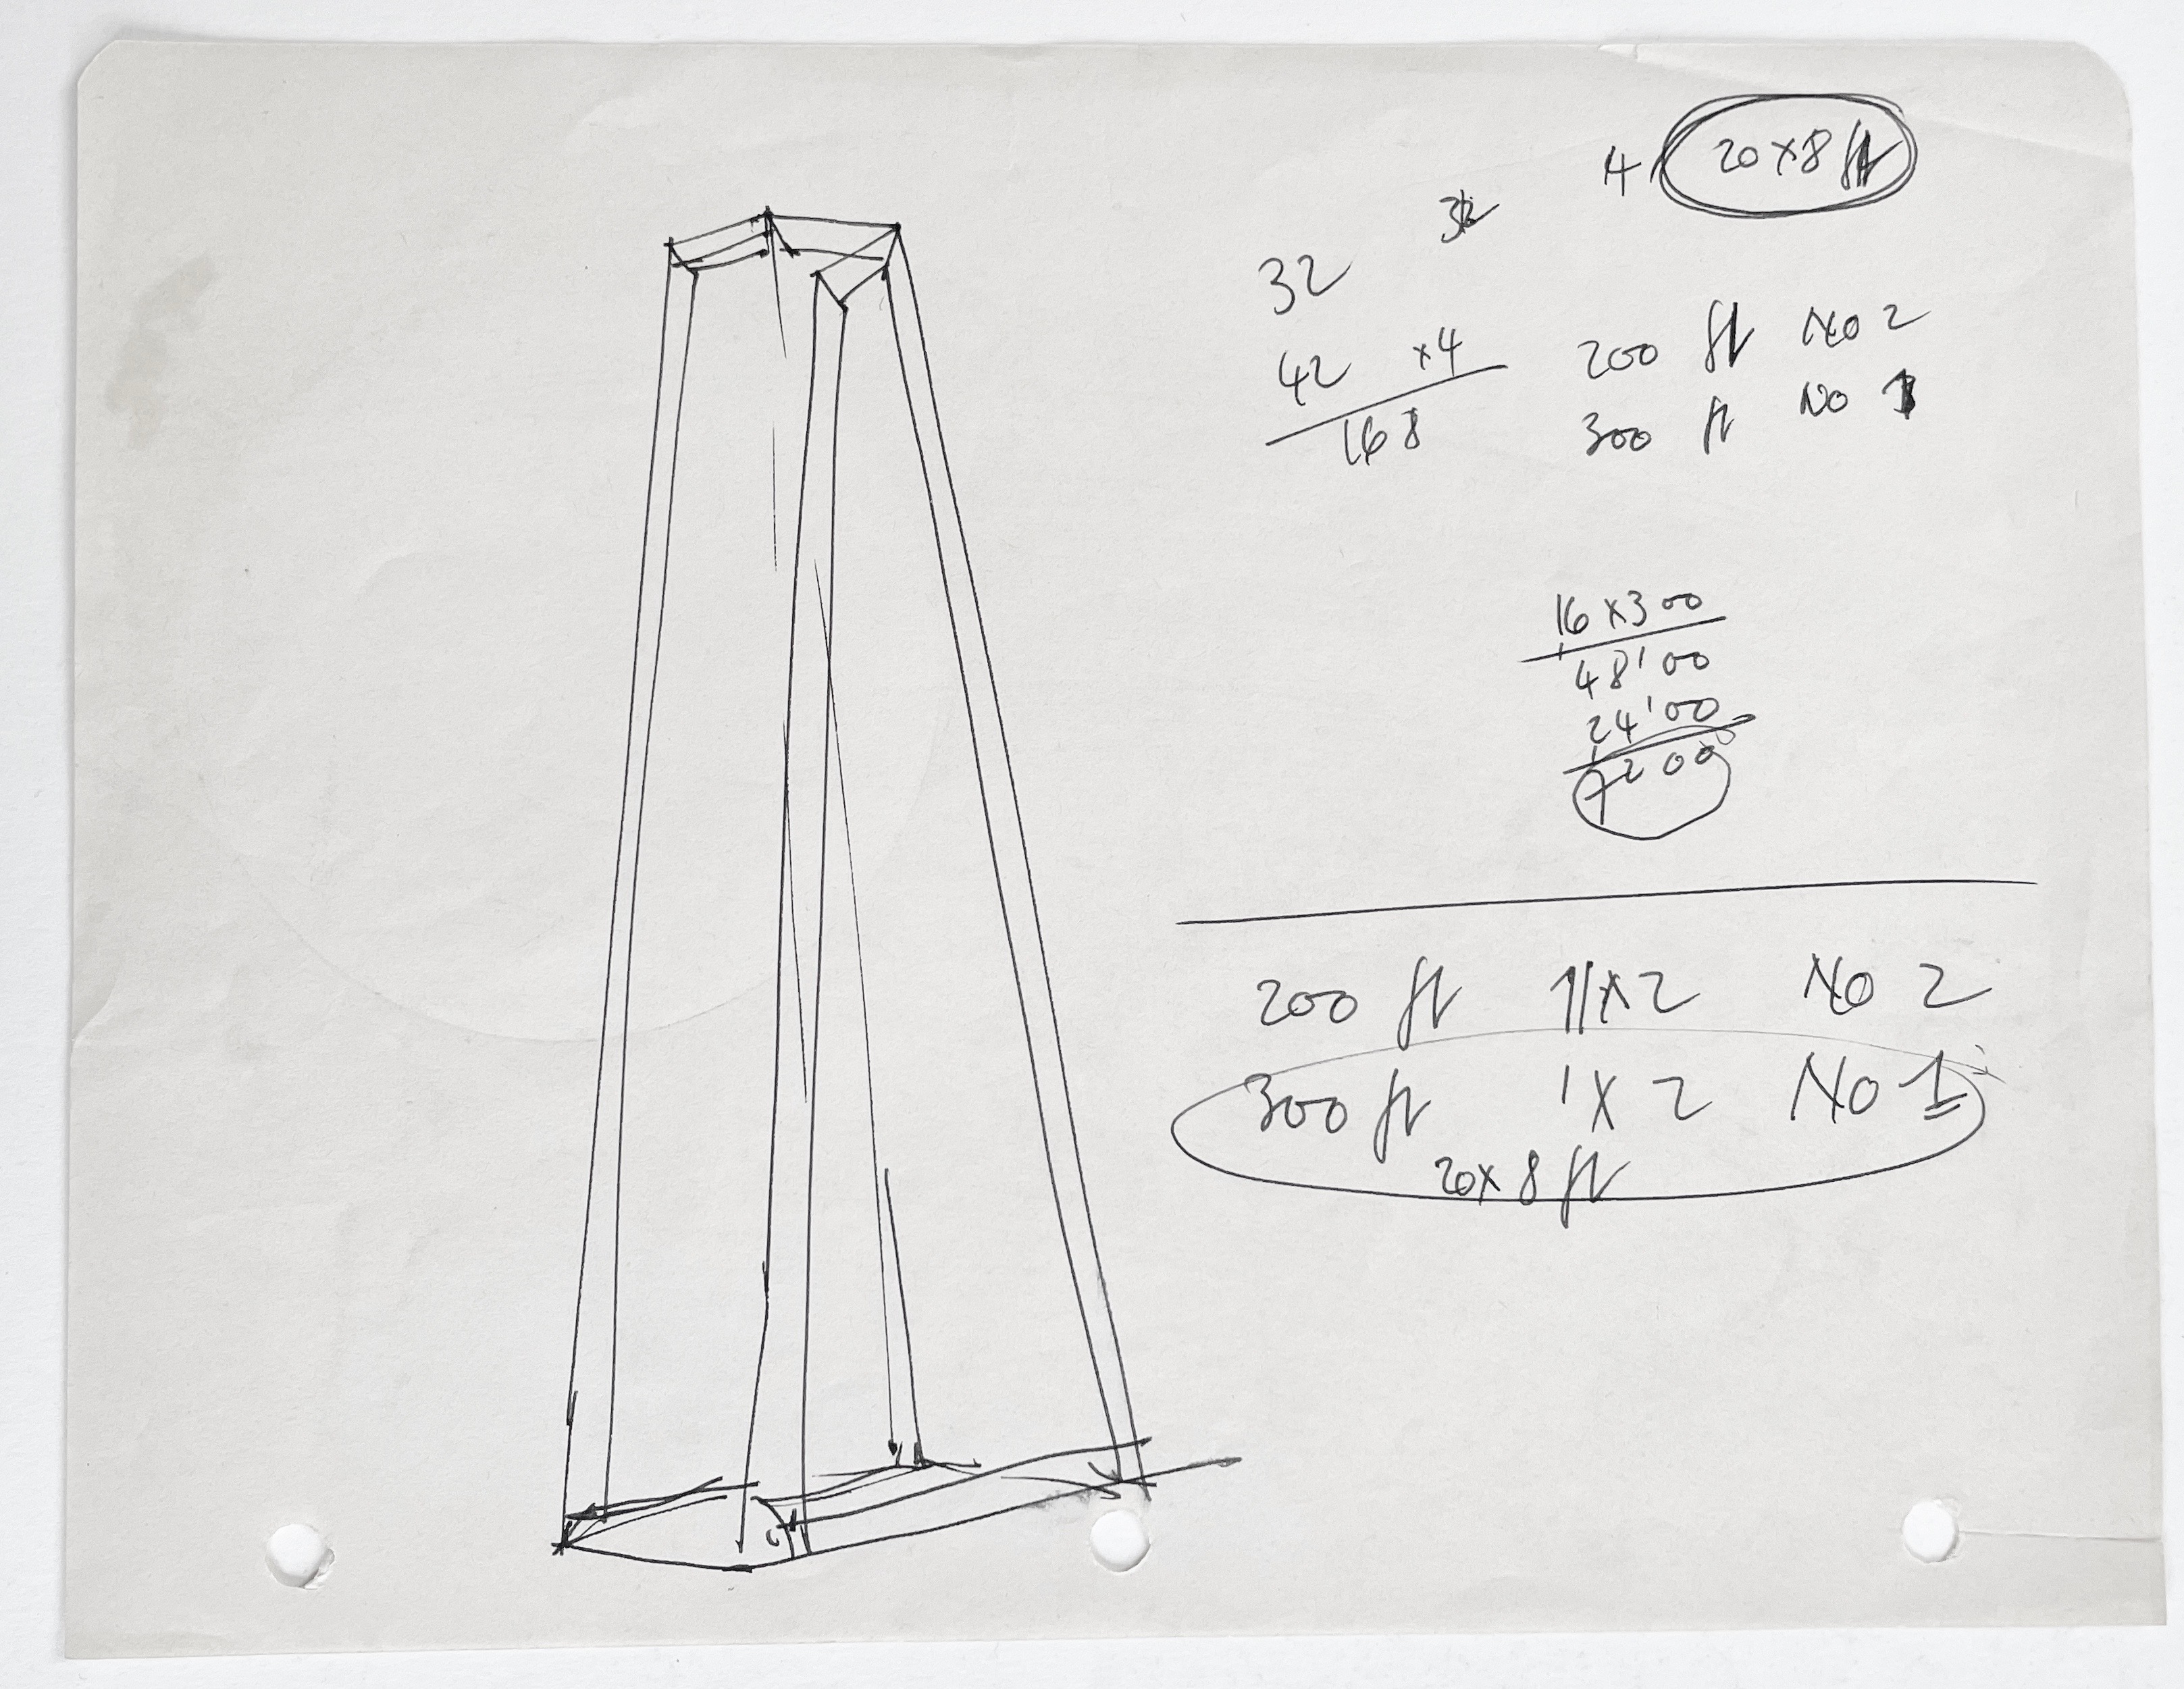 4 20x8 ft
32
32
42 x4
168
200 ft No 2
300 ft No 1
16 x300
48'00
24'00
7200
200 ft 1x2 No 2
300 ft 1x2 No 1
20x8 ft